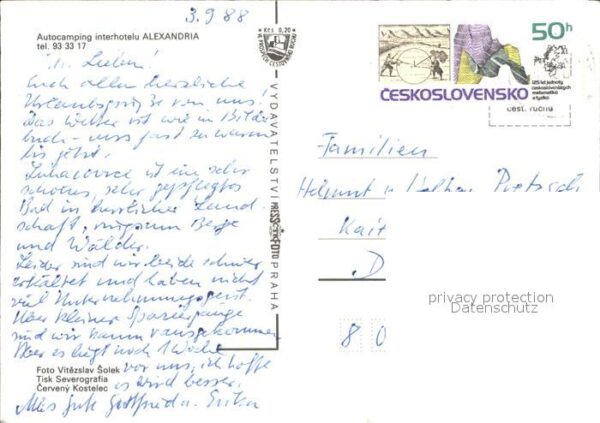 3.9.88
Autocamping interhotelu ALEXANDRIA
tel. 93 33 17
Ihr Lieben!
Euch allen herzliche
Urlaubsgrüße von uns!
Das Wetter ist wie im Bilder
buch - uns fast zu warm
bis jetzt.
Luhacovice ist ein sehr
schönes, sehr gepflegtes
Bad in herrlicher Land
schaft, ringsum Berge
und Wälder.
Leider sind wir beide schwer
erkältet und haben nicht
viel Unternehmungsgeist.
Über kleine Spaziergänge
sind wir kaum rausgekommen
Aber es liegt noch 1 Woche
vor uns, ich hoffe
es wird besser.
Alles Gute Gottfried u. Erika
Foto Vítězslav Šolek
Tisk Severografia
Červený Kostelec
Kčs 0,20
VYDAVATELSTVÍ
PRESSFOTO
PRAHA
50h
ČESKOSLOVENSKO
125 let jednoty
československých
matematiků
a fyziků
Familien
Helmut u.
D
80
privacy protection
Datenschutz